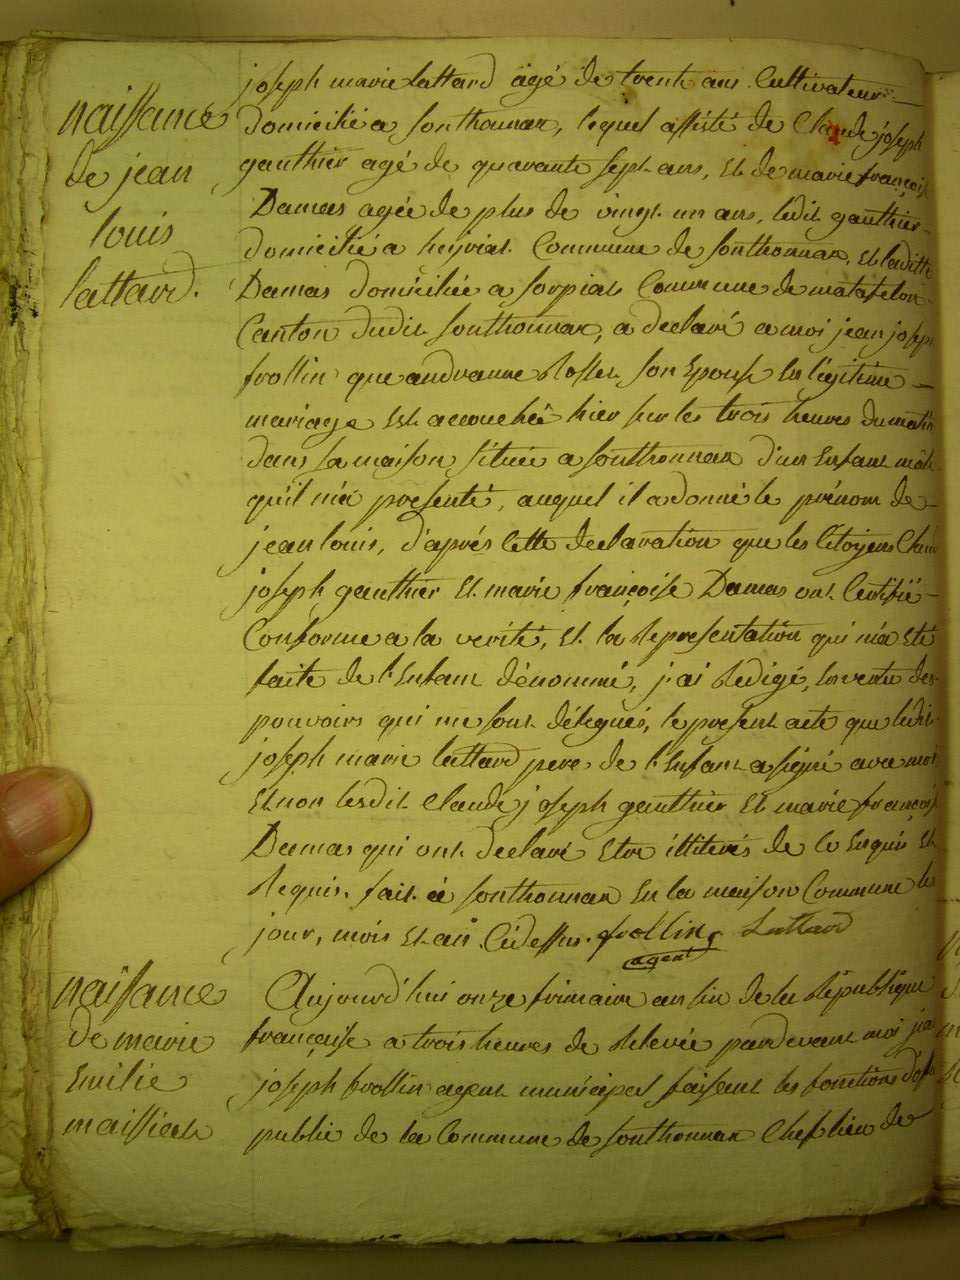 naissance
de jean
louis
lattard.
joseph marie lattard âgé de trente ans Cultivateur
domicilié a sonthonnax, lequel assisté de Claude joseph
gauthier agé de quarante sept ans, Et de marie françoise
Damas agée de plus de vingt un ans, ledit gauthier
domicilié a heyriat Commune de sonthonnax, Et laditte
Damas domiciliée a sorpiat Commune de matafelon
Canton dudit sonthonnax, a declaré a moi jean joseph
frollin que andreanne Rosset son Epouse En légitime
mariage Est accouchée hier sur les trois heures du matin
dans sa maison située a sonthonnax d'un Enfant mâle
qu'il m'a presenté, auquel il a donné le prénom de
jean louis, d'après Cette declaration que les Citoyens Claude
joseph gauthier Et marie françoise Damas ont Certifié
Conforme a la verité, Et la Representation qui m'a Eté
faite de l'Enfant dénommé, j'ai Redigé, En vertu des
pouvoirs qui me sont délegués, le present acte que ledit
joseph marie lattard pere de l'Enfant a signé avec moi
Et non lesdit Claude joseph gauthier Et marie françoise
Damas qui ont declaré Etre illiterés de ce Enquis Et
Requis. fait à sonthonnax En la maison Commune le
jour, mois Et an Cidessus. frollin Lattard
agent
naissance
de marie
Emilie
maissiat
Aujourd'hui onze frimaire an six de la République
française a trois heures de Relevée pardevant moi jean
joseph frollin agent municipal faisant les fonctions d'officier
public de la Commune de sonthonnax Cheflieu de